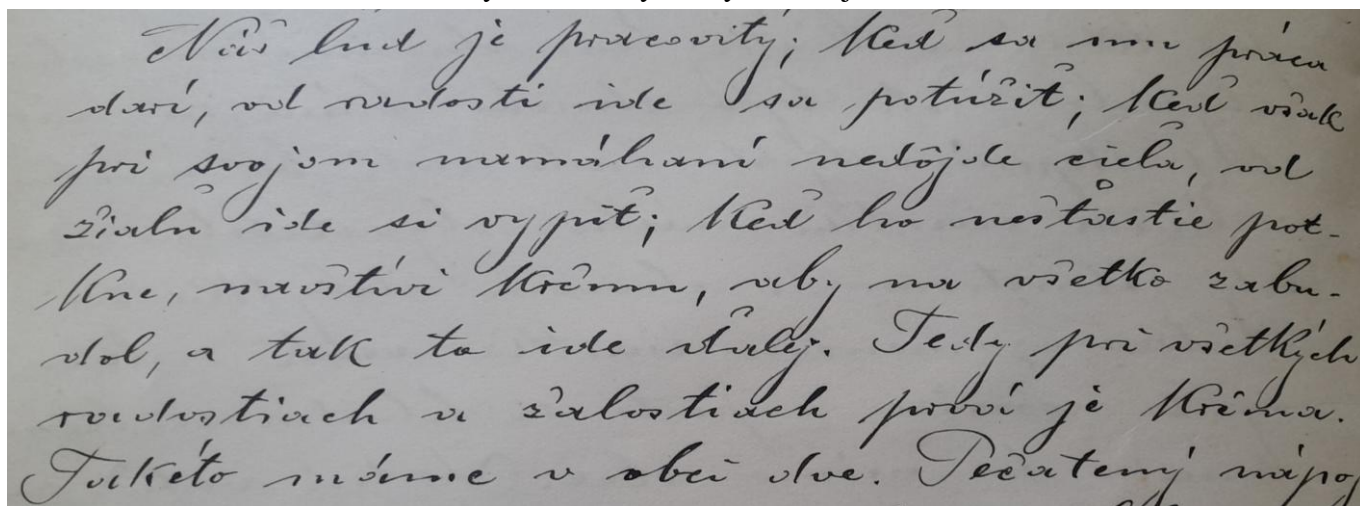 Náš lud je pracovitý; Keď sa mu práca
darí, od radosti ide sa potúžiť; Keď však
pri svojom namáhaní nedôjde cieľa, od
žiaľu ide si vypiť; Keď ho nešťastie pot-
Kne, navštívi Krčmu, aby na všetko zabu-
dol, a tak to ide ďalej. Tedy pri všetkých
radostiach a žalostiach prvá je Krčma.
Takéto máme v obci dve. Pečatený nápoj